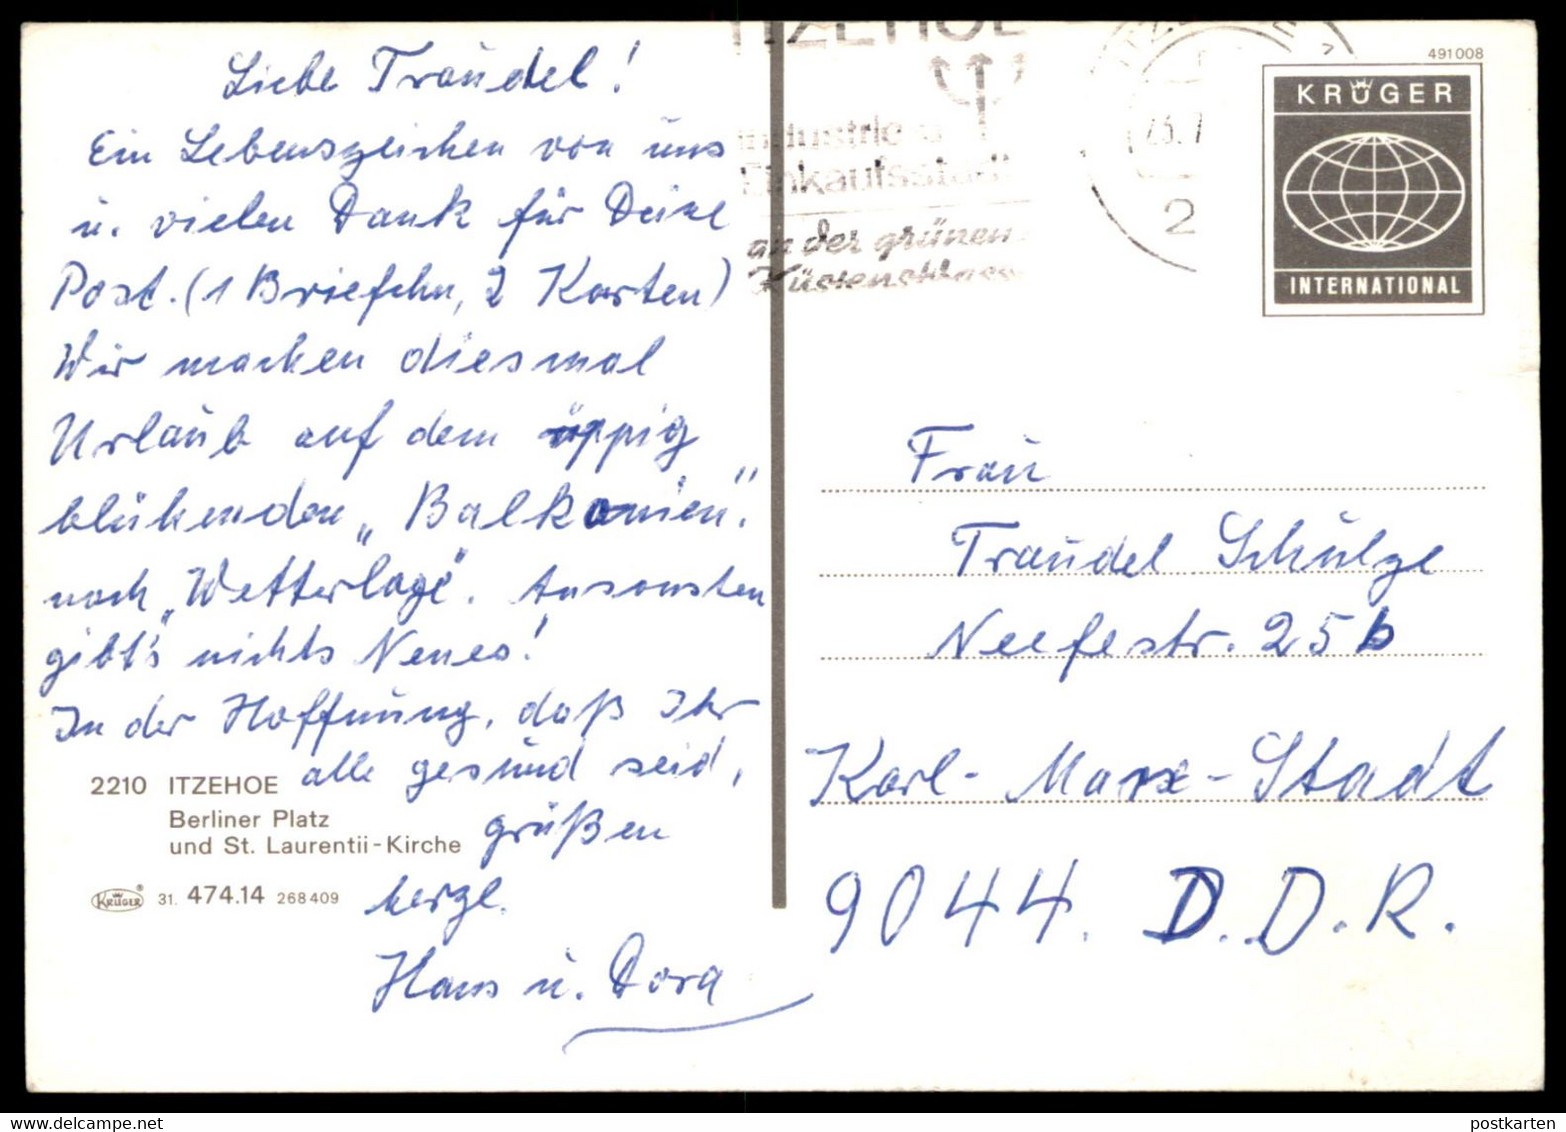 Liebe Traudel!
Ein Lebenszeichen von uns
u. vielen Dank für Deine
Post. (1 Briefchn, 2 Karten)
Wir machen diesmal
Urlaub auf dem üppig
blühenden „Balkonien".
nach „Wetterlage". Ansonsten
gibt's nichts Neues!
In der Hoffnung, daß Ihr
alle gesund seid,
grüßen
herzl.
Hans u. Dora
2210 ITZEHOE
Berliner Platz
und St. Laurentii-Kirche
KRÜGER ® 31. 474.14 268409
ITZEHOE
Industrie u
Einkaufsstadt
an der grünen
Küstenstrasse
23.7
2
491008
KRÜGER
INTERNATIONAL
Frau
Traudel Schulze
Neefestr. 25 b
Karl-Marx-Stadt
9044. D.D.R.
postkarten